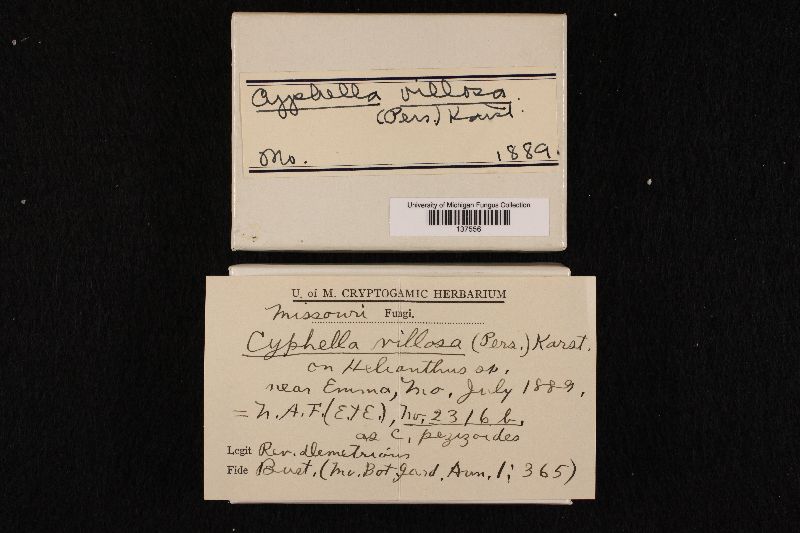 Cyphella villosa.
(Pers.) Karst.
Mo. 1889.
University of Michigan Fungus Collection
137556
U. of M. CRYPTOGAMIC HERBARIUM
Missouri Fungi.
Cyphella villosa (Pers.) Karst.
on Helianthus sp.
near Emma, Mo. July 1889.
= N. A. F. (E. & E.), No. 2316 b.
as C. pezizoides
Legit Rev. Demetrious
Fide Burt. (Mo. Bot. Gard. Ann. 1: 365)